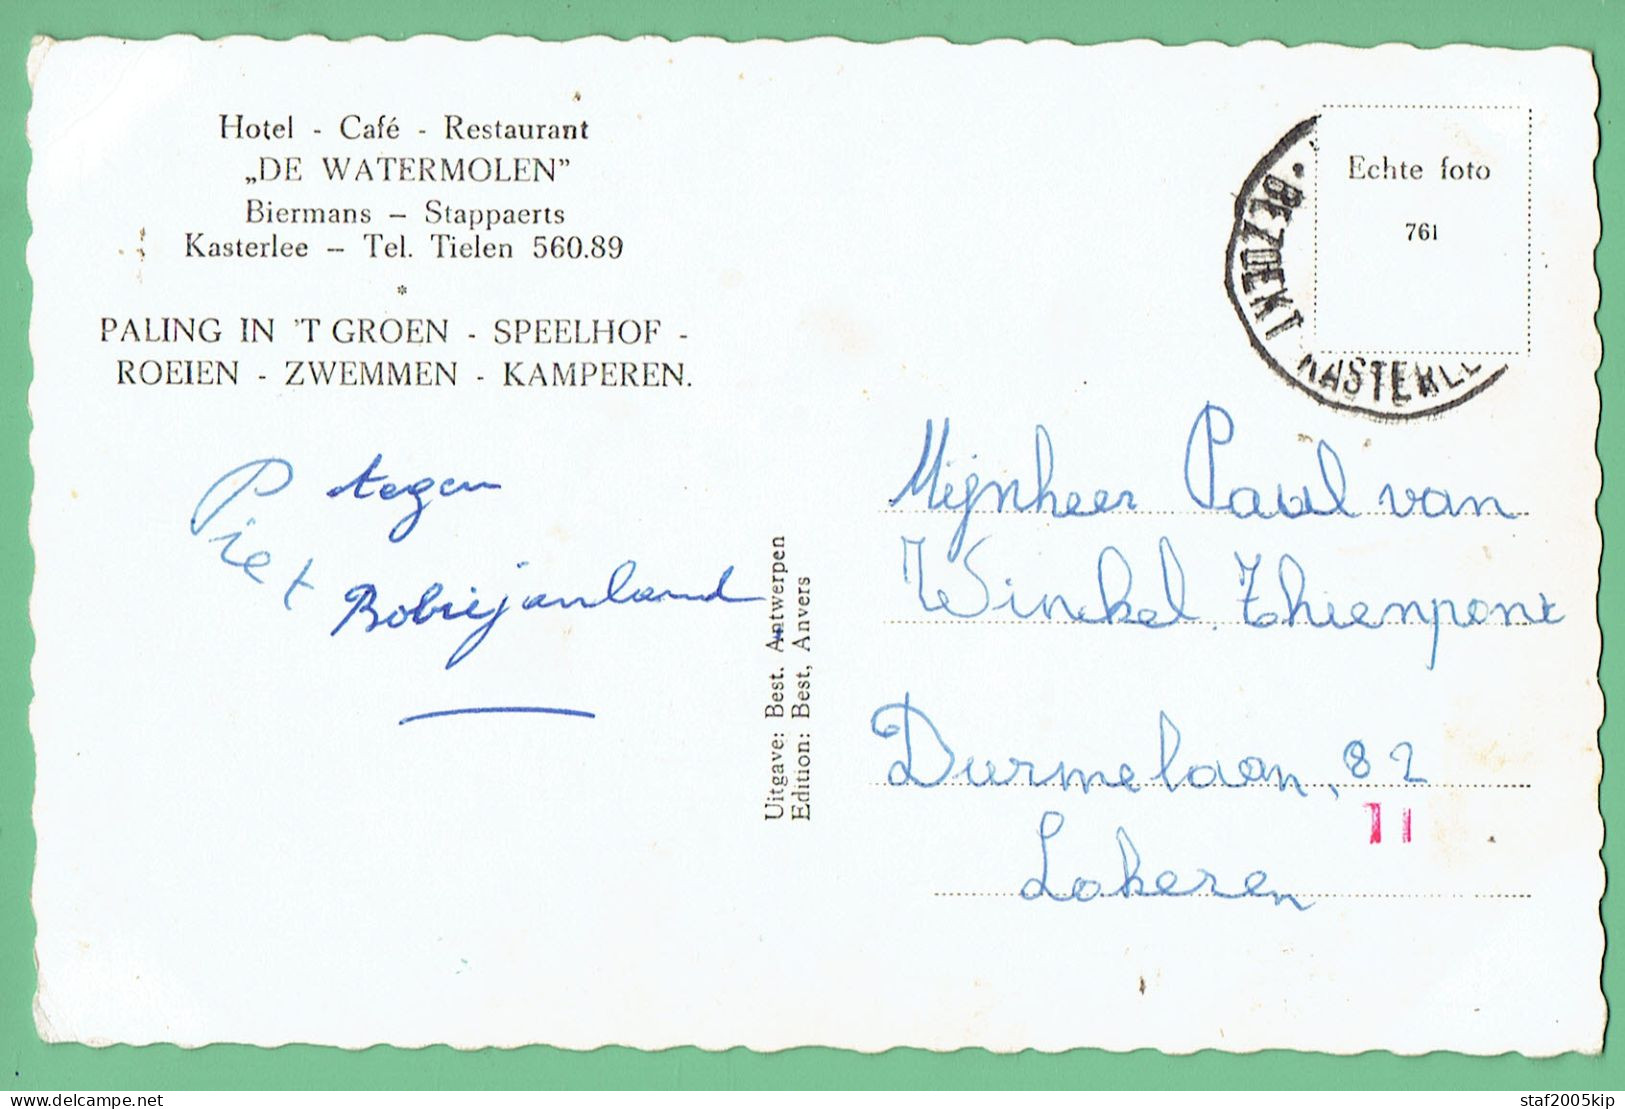 Hotel - Café - Restaurant
„DE WATERMOLEN”
Biermans – Stappaerts
Kasterlee – Tel. Tielen 560.89
*
PALING IN 'T GROEN - SPEELHOF -
ROEIEN - ZWEMMEN - KAMPEREN.
Piet tegen
Bobbejanland
Uitgave: Best. Antwerpen
Edition: Best, Anvers
Echte foto
761
BEZOEKT KASTERLEE
Mijnheer Paul van
Winckel. Thienpont
Durmelaan, 82
11
Lokeren
delcampe.net
staf2005kip